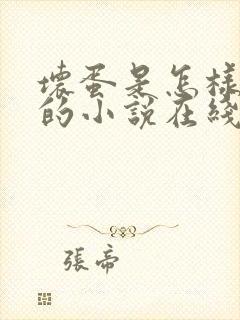 壞蛋是怎樣
的小說在綫
張帝